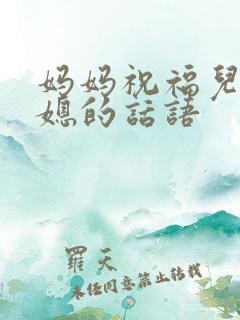 妈妈祝福兒
媳的話語
羅天
未经同意禁止转载